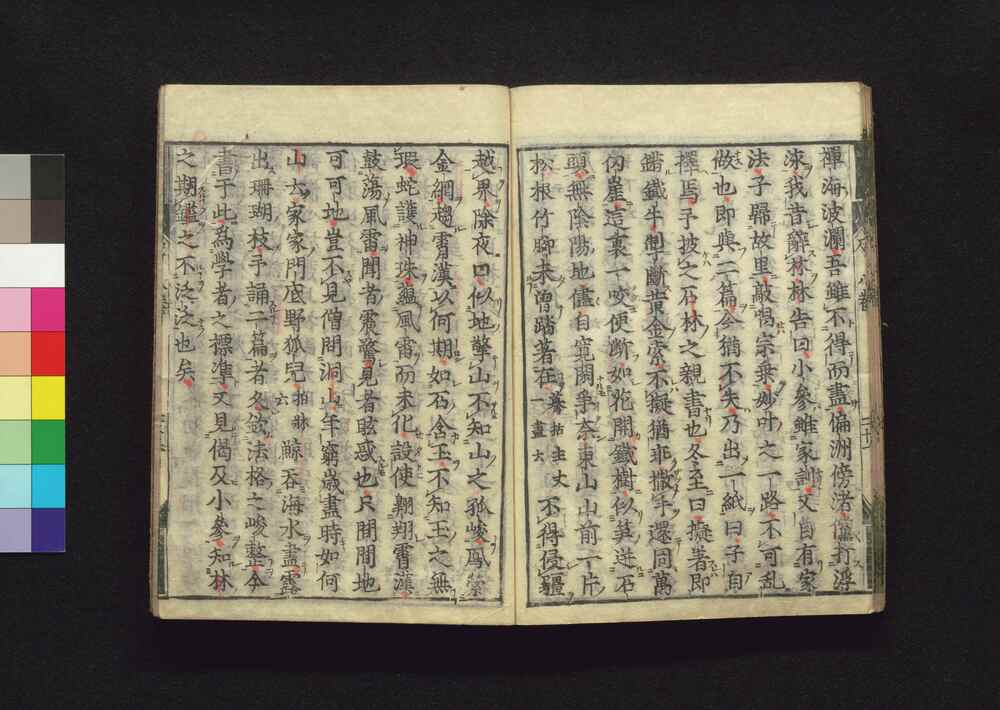 禪海波瀾吾雖不得而盡偏洲傍渚儘打漂
洓我昔辭林林告曰小參雖家訓又自有家
法子歸故里敲唱宗乗妙叶之一路不可亂
做也即與二篇今猶不失乃出一紙曰子自
擇焉予披之石林之親書也冬至曰擬著即
錯鐵牛掣斷黄金索不擬猶乖撒手還同萬
仭崖這裏一咬便斷如花開鐵樹似笋迸石
頭無陰陽地儘自寬閑爭柰東山山前一片
松根竹脚未曾踏著在驀拈主丈一畫不得侵疆
越界除夜曰似地擎山不知山之孤峻鳳縈
金網趨霄漢以何期如石含玉不知玉之無
瑕蛇護神珠蘊風雷而未化設使翺翔霄漢
鼓蕩風雷聞者震驚見者眩惑也只閒閒地
可可地豈不見僧問洞山年窮歳盡時如何
山六家家門底野狐兒拍林六鯨吞海水盡露
出珊瑚枝予誦二篇者久欽法格之峻整今
書于此爲學者之標準又見偈及小參知林
之期鑑之不泛泛也矣